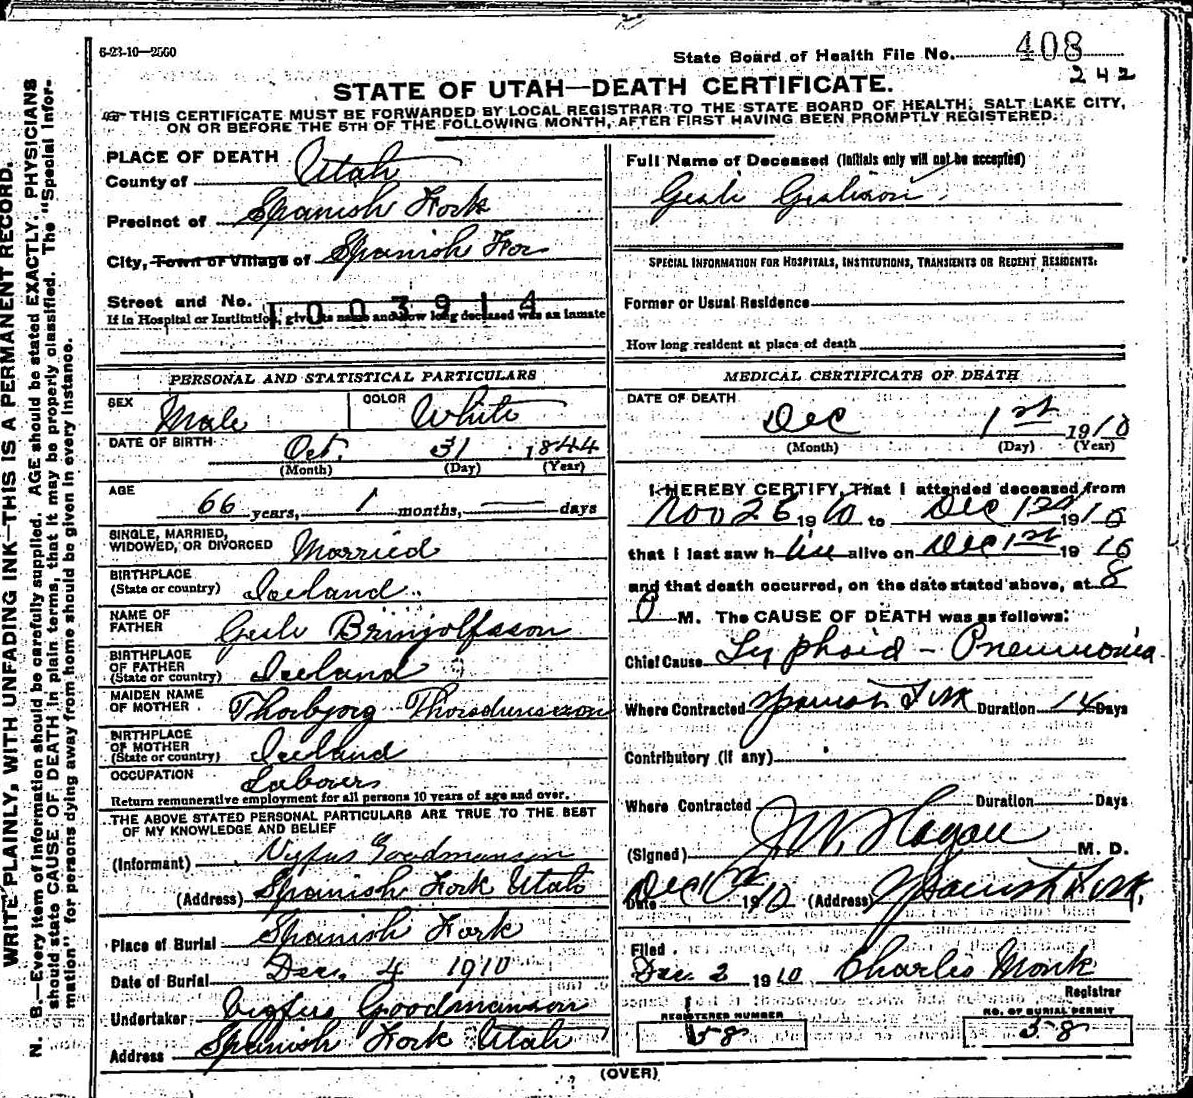 6-23-10—2500
State Board of Health File No. 408
242
STATE OF UTAH—DEATH CERTIFICATE.
THIS CERTIFICATE MUST BE FORWARDED BY LOCAL REGISTRAR TO THE STATE BOARD OF HEALTH, SALT LAKE CITY,
ON OR BEFORE THE 5TH OF THE FOLLOWING MONTH, AFTER FIRST HAVING BEEN PROMPTLY REGISTERED.
WRITE PLAINLY, WITH UNFADING INK—THIS IS A PERMANENT RECORD.
N. B.—Every item of information should be carefully supplied. AGE should be stated EXACTLY. PHYSICIANS
should state CAUSE OF DEATH in plain terms, that it may be properly classified. The "Special Infor-
mation" for persons dying away from home should be given in every instance.
PLACE OF DEATH
County of Utah
Precinct of Spanish Fork
City, Town or Village of Spanish For
Street and No.
1003914
If in Hospital or Institution, give its name and how long deceased was an inmate
PERSONAL AND STATISTICAL PARTICULARS
SEX Male COLOR White
DATE OF BIRTH Oct. 31 1844
(Month) (Day) (Year)
AGE
66 years, 1 months, — days
SINGLE, MARRIED,
WIDOWED, OR DIVORCED Married
BIRTHPLACE
(State or country) Iceland
NAME OF
FATHER Gesli Brinjolfsson
BIRTHPLACE
OF FATHER
(State or country) Iceland
MAIDEN NAME
OF MOTHER Thorbjorg
BIRTHPLACE
OF MOTHER
(State or country) Iceland
OCCUPATION Laborer
Return remunerative employment for all persons 10 years of age and over.
THE ABOVE STATED PERSONAL PARTICULARS ARE TRUE TO THE BEST
OF MY KNOWLEDGE AND BELIEF
(Informant) Vigfus Goodmanson
(Address) Spanish Fork Utah
Place of Burial Spanish Fork
Date of Burial Dec. 4 1910
Undertaker Vigfus Goodmanson
Address Spanish Fork Utah
Full Name of Deceased (Initials only will not be accepted)
Gesli
SPECIAL INFORMATION FOR HOSPITALS, INSTITUTIONS, TRANSIENTS OR RECENT RESIDENTS:
Former or Usual Residence
How long resident at place of death
MEDICAL CERTIFICATE OF DEATH
DATE OF DEATH
Dec 1st 1910
(Month) (Day) (Year)
I HEREBY CERTIFY, That I attended deceased from
Nov 26 1910 to Dec 1st 1910
that I last saw h alive on Dec 1st 1910
and that death occurred, on the date stated above, at 8
P M. The CAUSE OF DEATH was as follows:
Chief Cause Typhoid - Pneumonia
Where Contracted Spanish Fork Duration 14 Days
Contributory (if any)
Where Contracted Duration Days
(Signed) J. W. Hagan M. D.
Date Dec 1st 1910 (Address) Spanish Fork,
Filed
Dec. 2 1910 Charles Monk
Registrar
REGISTERED NUMBER
58
NO. OF BURIAL PERMIT
58
(OVER)